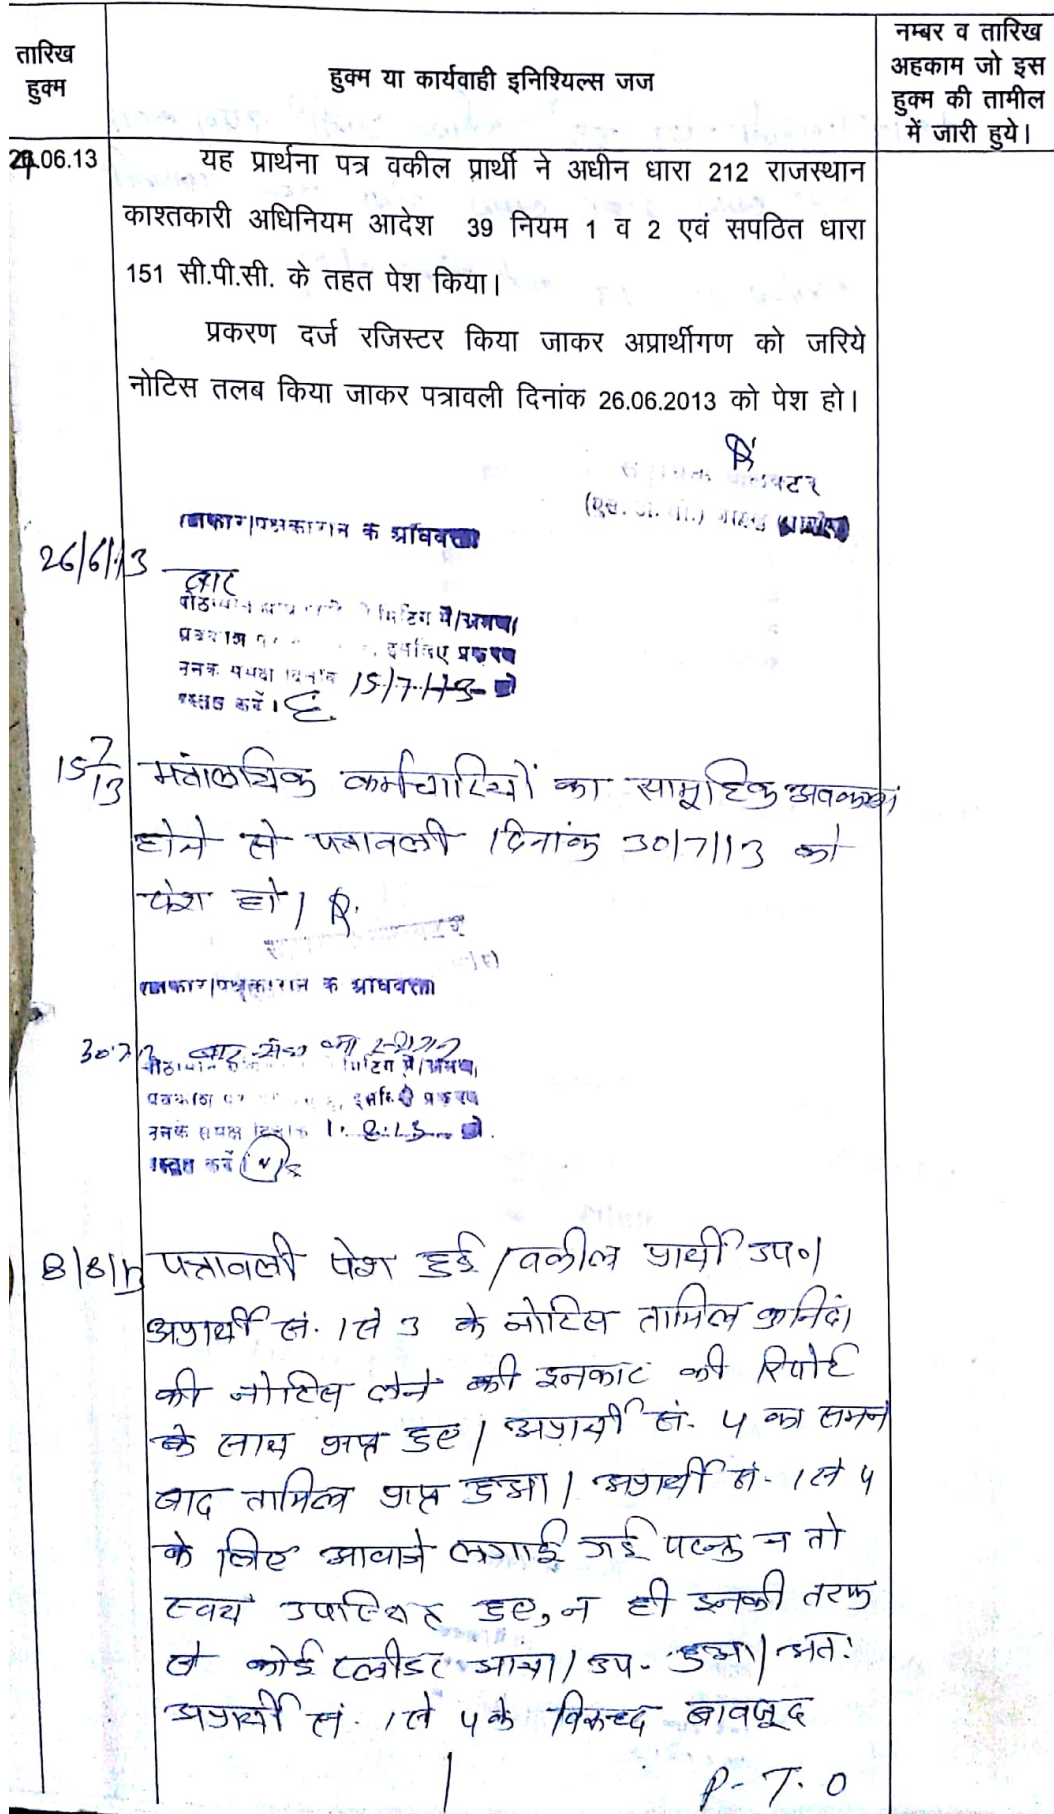 तारिख
हुक्म
हुक्म या कार्यवाही इनिश्यिल्स जज
नम्बर व तारिख
अहकाम जो इस
हुक्म की तामील
में जारी हुये।
20.06.13
यह प्रार्थना पत्र वकील प्रार्थी ने अधीन धारा 212 राजस्थान
काश्तकारी अधिनियम आदेश 39 नियम 1 व 2 एवं सपठित धारा
151 सी.पी.सी. के तहत पेश किया।
प्रकरण दर्ज रजिस्टर किया जाकर अप्रार्थीगण को जरिये
नोटिस तलब किया जाकर पत्रावली दिनांक 26.06.2013 को पेश हो।
के अधिवक्ता
26/6/13
बार
मिटिंग में/अथवा
इसलिए प्रकरण
उनके समक्ष दिनांक 15/7/13 को
प्रस्तुत करें।
15/7/13 मंत्रालयिक कर्मचारियों का सामूहिक अवकाश
होने से पत्रावली दिनांक 30/7/13 को
पेश हो।
के अधिवक्ता
30.7.13
मिटिंग में/अथवा
इसलिए प्रकरण
उनके समक्ष दिनांक 1.8.13 को
प्रस्तुत करें
8/8/13 पत्रावली पेश हुई/वकील प्रार्थी उप०/
अप्रार्थी सं. 1 से 3 के नोटिस तामिल कुनिंदा
की नोटिस लेने की इनकार की रिपोर्ट
के साथ प्राप्त हुए/ अप्रार्थी सं. 4 का समन
बाद तामिल प्राप्त हुआ/ अप्रार्थी सं. 1 से 4
के लिए आवाजे लगाई गई परन्तु न तो
स्वयं उपस्थित हुए, न ही इनकी तरफ
से कोई प्लीडर आया/ उप. हुआ/ अतः
अप्रार्थी सं. 1 से 4 के विरूद्ध बावजूद
P.T.O